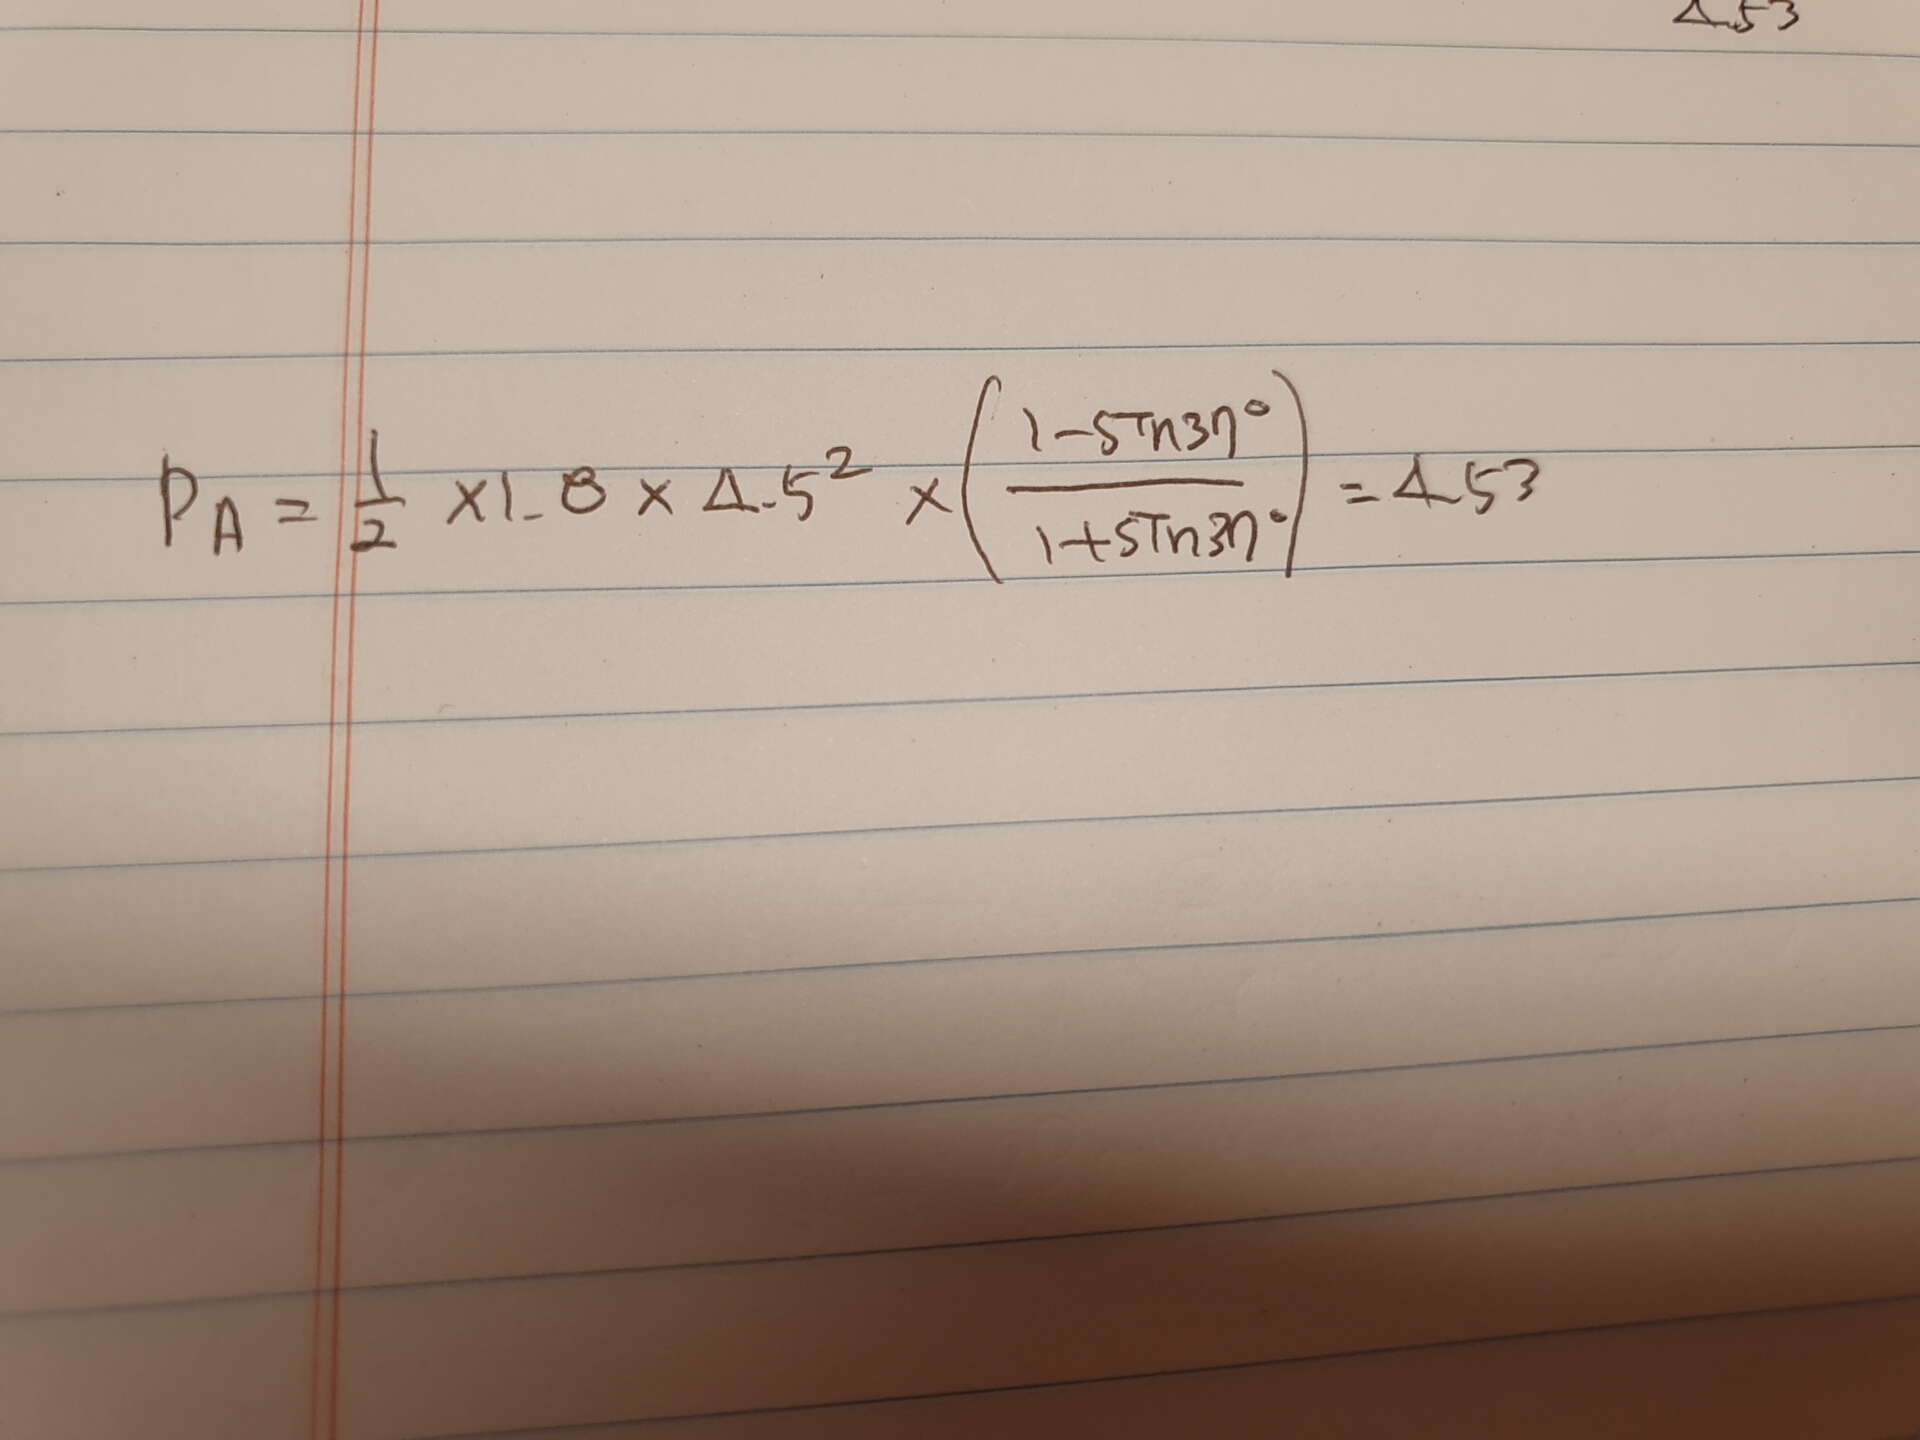 4.53
P_A = 1/2 × 1.8 × 4.5² × ((1-sin37°)/(1+sin37°)) = 4.53